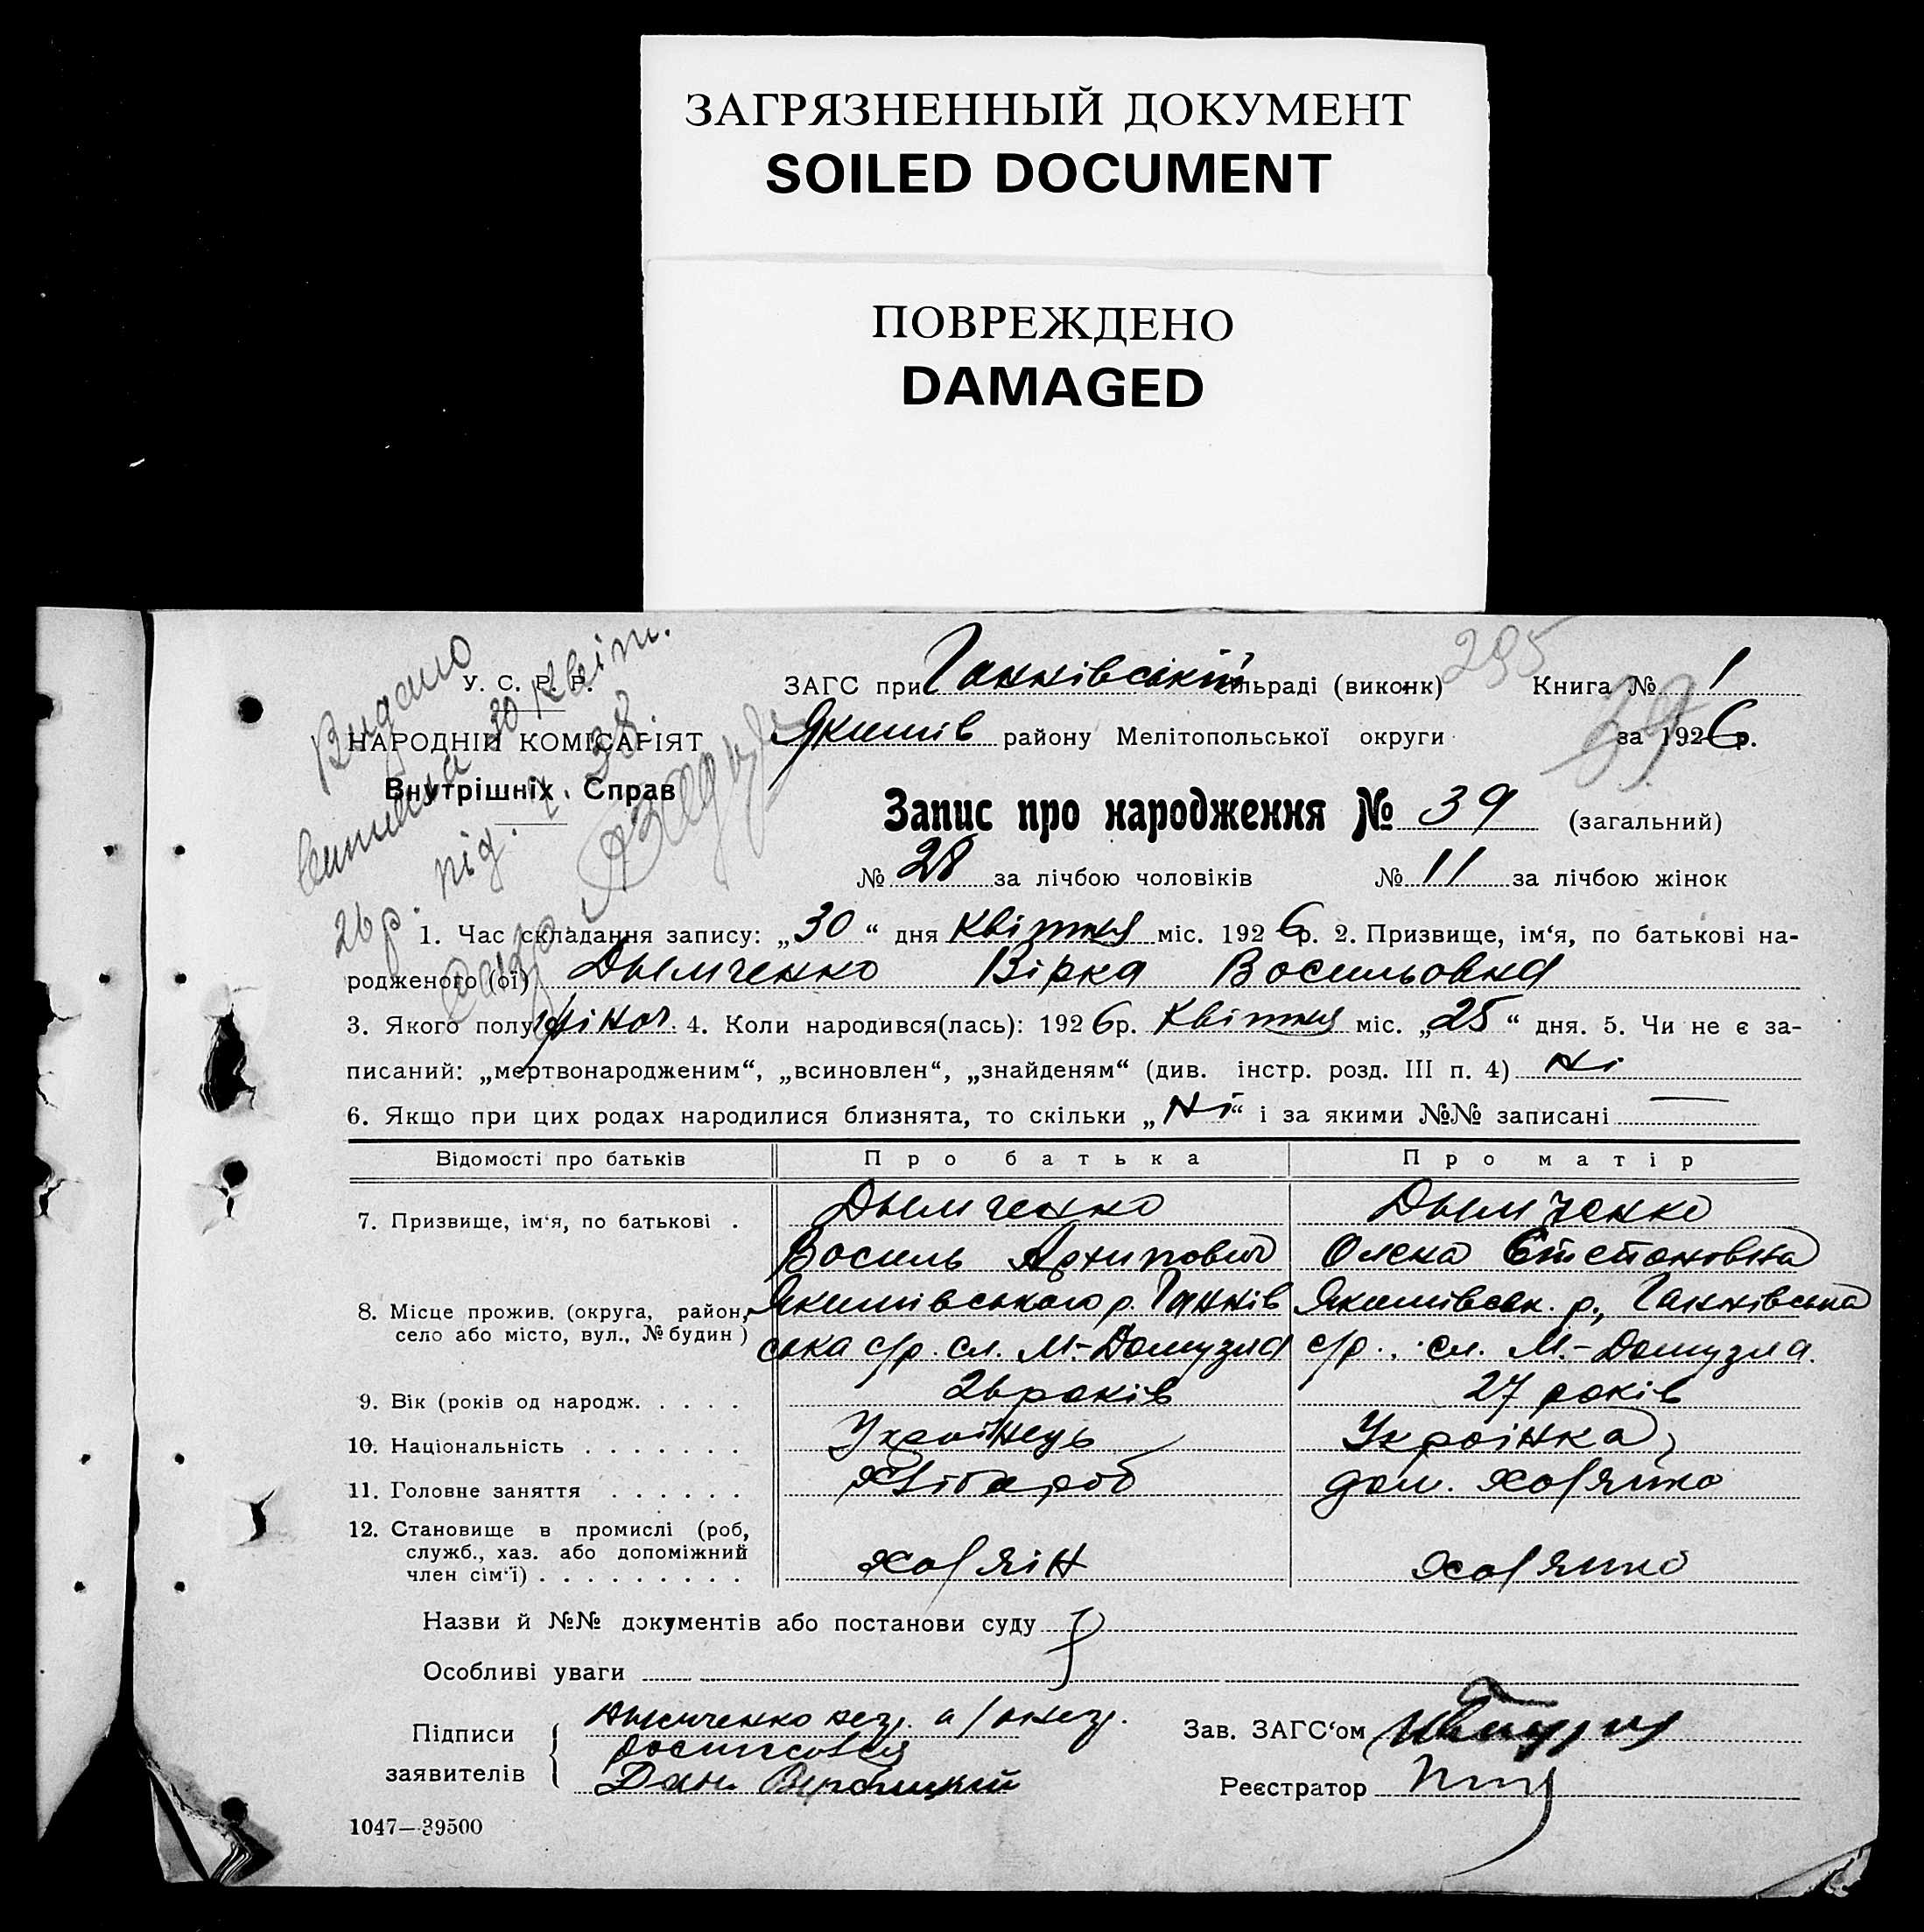 ЗАГРЯЗНЕННЫЙ ДОКУМЕНТ
SOILED DOCUMENT
ПОВРЕЖДЕНО
DAMAGED
295
Видано
виписка 30 квіт.
26 р. під. ч. 38.
У. С. Р. Р.
НАРОДНІЙ КОМІСАРІЯТ
Внутрішніх Справ
ЗАГС при Ганнівській сільраді (виконк) Книга № 1
Якимів району Мелітопольської округи за 1926 р.
39
Запис про народження № 39 (загальний)
№ 28 за лічбою чоловіків № 11 за лічбою жінок
1. Час складання запису: „30“ дня квітня міс. 1926 р. 2. Призвище, ім‘я, по батькові на-
родженого (ої) Дымченко Вірка Восильовна
3. Якого полу жіноч. 4. Коли народився(лась): 1926 р. Квітня міс. „25“ дня. 5. Чи не є за-
писаний: „мертвонародженим“, „всиновлен“, „знайденям“ (див. інстр. розд. III п. 4) ні
6. Якщо при цих родах народилися близнята, то скільки „ні“ і за якими №№ записані —
Відомості про батьків Про батька Про матір
7. Призвище, ім‘я, по батькові . Дымченко Дымченко
Восиль Архипович Олена Степоновна
8. Місце прожив. (округа, район, Якимівського р. Ганнів Якимівськ. р., Ганнівська
село або місто, вул., № будин) ська с/р. сл. М.-Домузла с/р. сл. М.-Домузла.
9. Вік (років од народж. . . . . 26 років 27 років
10. Національність . . . . . . . Українець Украінка
11. Головне заняття . . . . . . Хлібороб дом. хозяйка
12. Становище в промислі (роб,
служб., хаз. або допоміжний
член сім‘ї) . . . . . . . . . хозяін хозяйка
Назви й №№ документів або постанови суду
Особливі уваги
Підписи Дымченко
заявителів росписовся
Зав. ЗАГС‘ом
Реєстратор
1047—39500